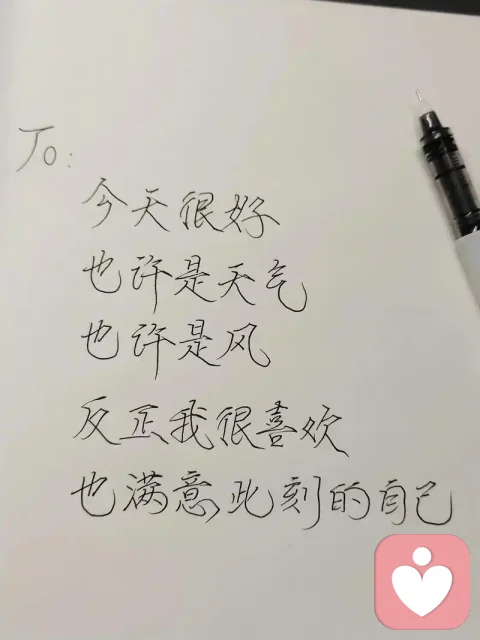 To:
今天很好
也许是天气
也许是风
反正我很喜欢
也满意此刻的自己